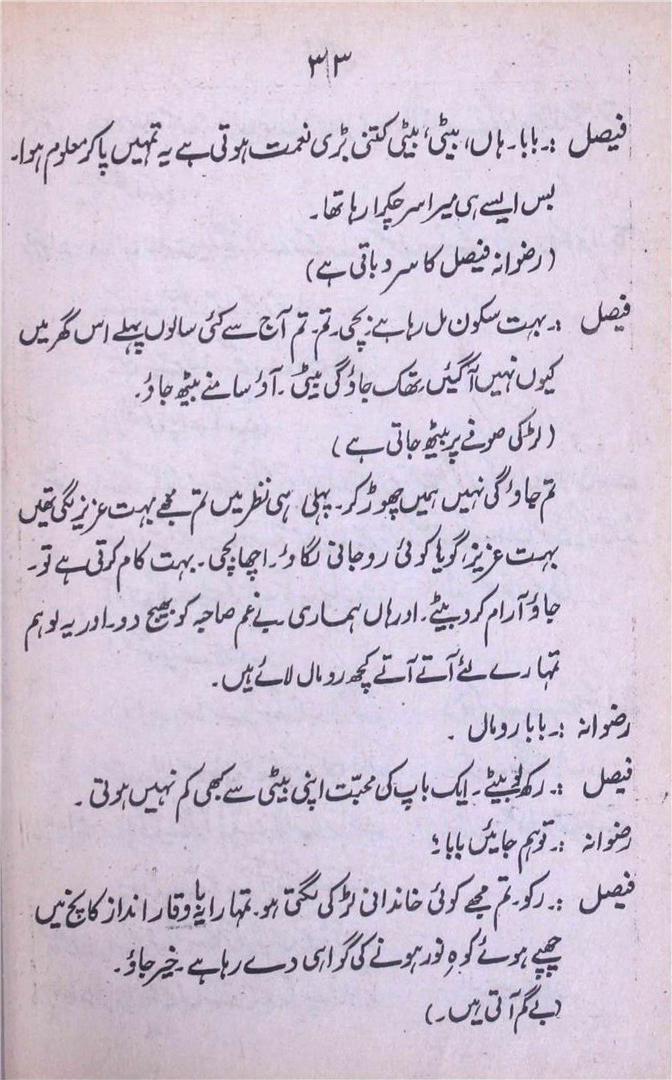 ۳۳
فیصل :۔ بابا۔ ہاں، بیٹی، بیٹی کتنی بڑی نعمت ہوتی ہے یہ تمہیں پا کر معلوم ہوا۔
بس ایسے ہی میرا سر چکرا رہا تھا۔
(رضوانہ فیصل کا سر دباتی ہے)
فیصل :۔ بہت سکون مل رہا ہے بچی۔ تم۔ تم آج سے کئی سالوں پہلے اس گھر میں
کیوں نہیں آگئیں۔ تھک جاؤ گی بیٹی۔ آؤ سامنے بیٹھ جاؤ۔
(لڑکی صوفے پر بیٹھ جاتی ہے)
تم جاؤ گی نہیں ہمیں چھوڑ کر۔ پہلی ہی نظر میں تم مجھے بہت عزیز لگی تھیں
بہت عزیز، گویا کوئی روحانی لگاؤ۔ اچھا بچی۔ بہت کام کرتی ہے تو۔
جاؤ آرام کرو بیٹے۔ اور ہاں ہماری بے غم صاحبہ کو بھیج دو۔ اور یہ لو ہم
تمہارے لئے آتے آتے کچھ رومال لائے ہیں۔
رضوانہ :۔ بابا رومال ۔
فیصل :۔ رکھ لو بیٹے۔ ایک باپ کی محبّت اپنی بیٹی سے کبھی کم نہیں ہوتی۔
رضوانہ :۔ تو ہم جائیں بابا؟
فیصل :۔ رکو۔ تم مجھے کوئی خاندانی لڑکی لگتی ہو۔ تمہارا یہ با وقار انداز کانچ میں
چھپے ہوئے کوہِ نور ہونے کی گواہی دے رہا ہے۔ خیر جاؤ۔
(بے گم آتی ہیں۔)